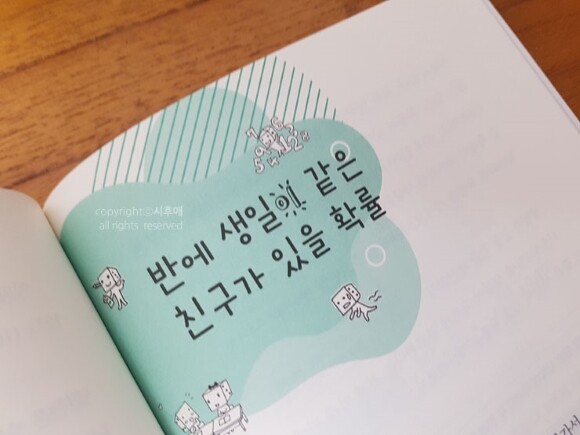 copyrightⓒ시후맘
all rights reserved
반에 생일이 같은
친구가 있을 확률